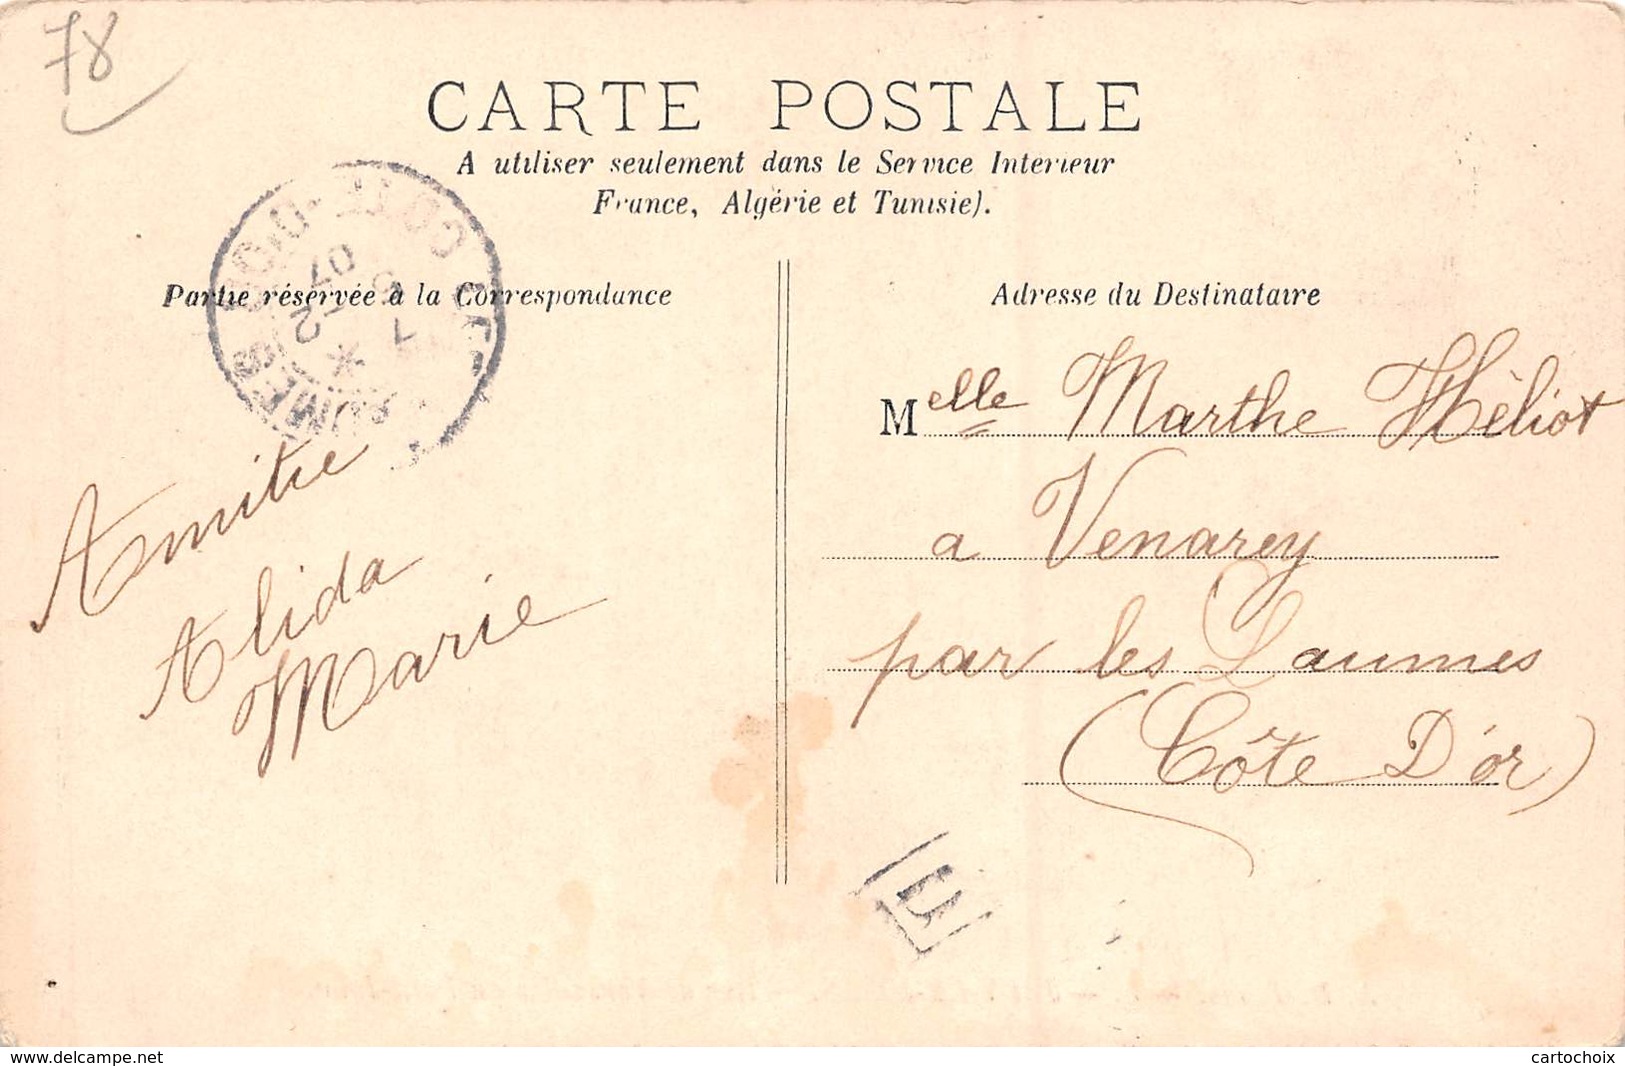 78
CARTE POSTALE
A utiliser seulement dans le Service Interieur
France, Algérie et Tunisie).
Partie réservée à la Correspondance
Adresse du Destinataire
COTE-D'OR
07
Melle Marthe Héliot
a Venarey
par les Laumes
(Côte D'or)
Amitie
Alida
Marie
www.delcampe.net
cartochoix